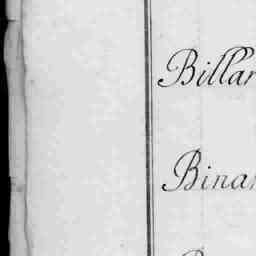 Billar
Binar